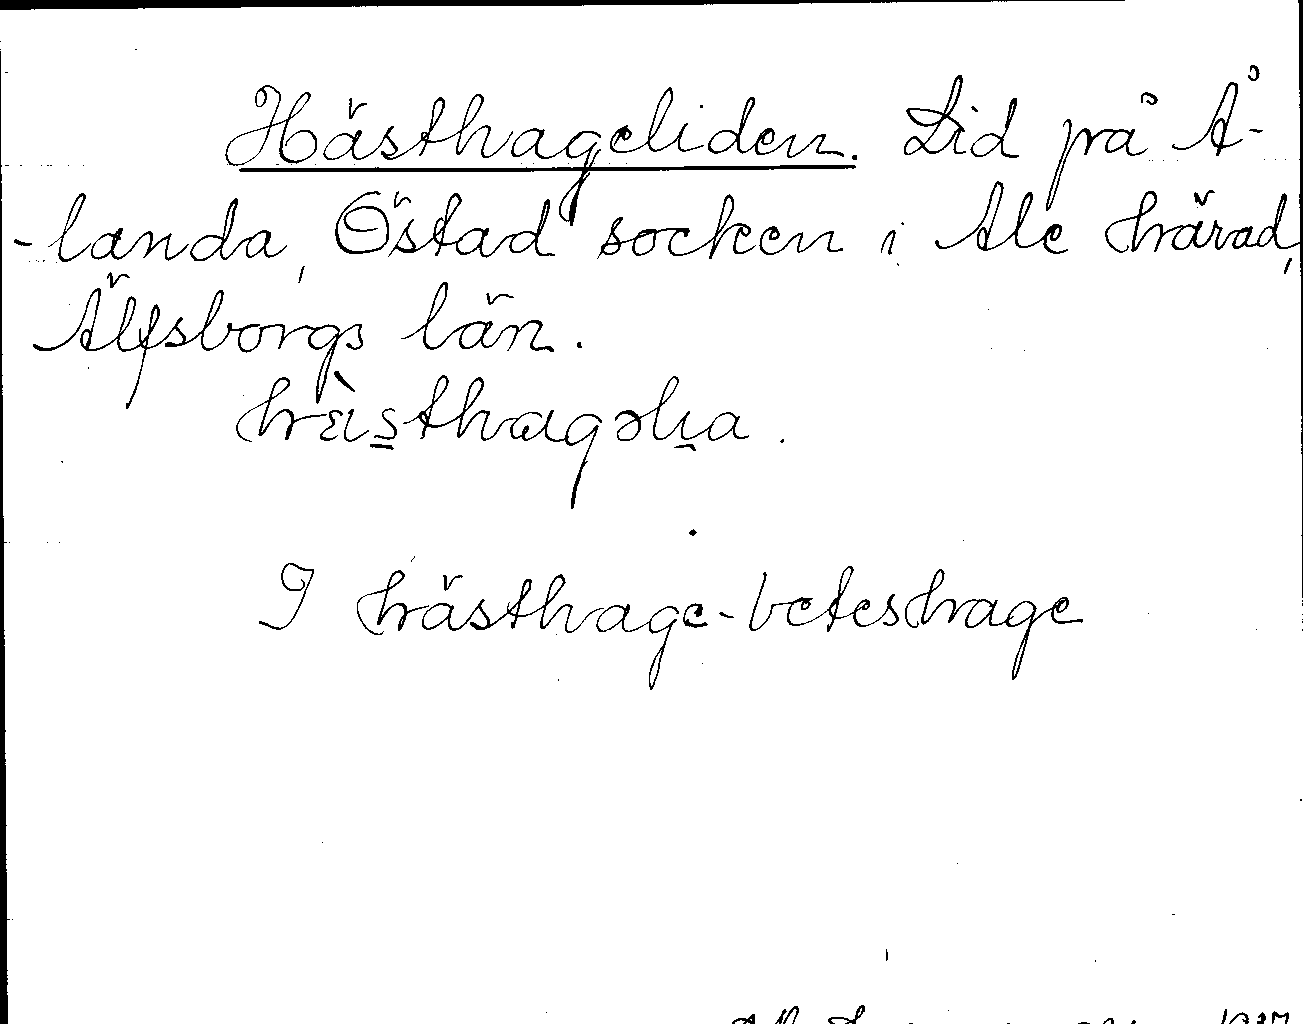 Hästhageliden. Lid på Å-
-landa, Östad socken i Ale härad,
Älfsborgs län.
hὲsthagəlıa.
I hästhage-beteshage